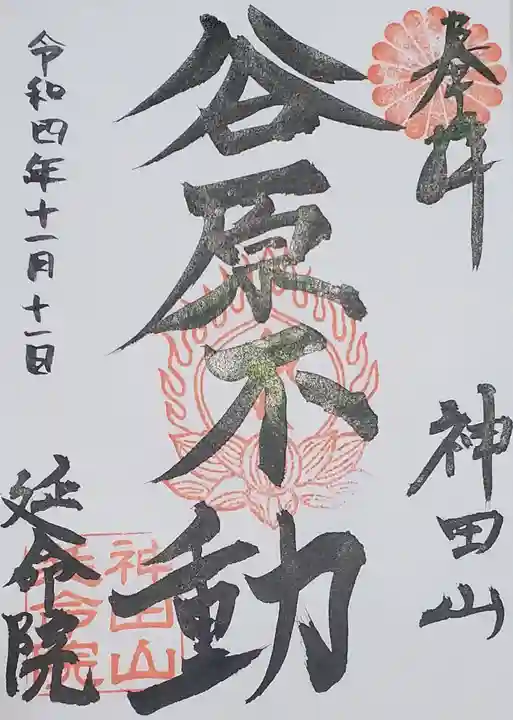 奉拝
神田山
谷原不動
令和四年十一月十一日
延命院
神田山
延命院